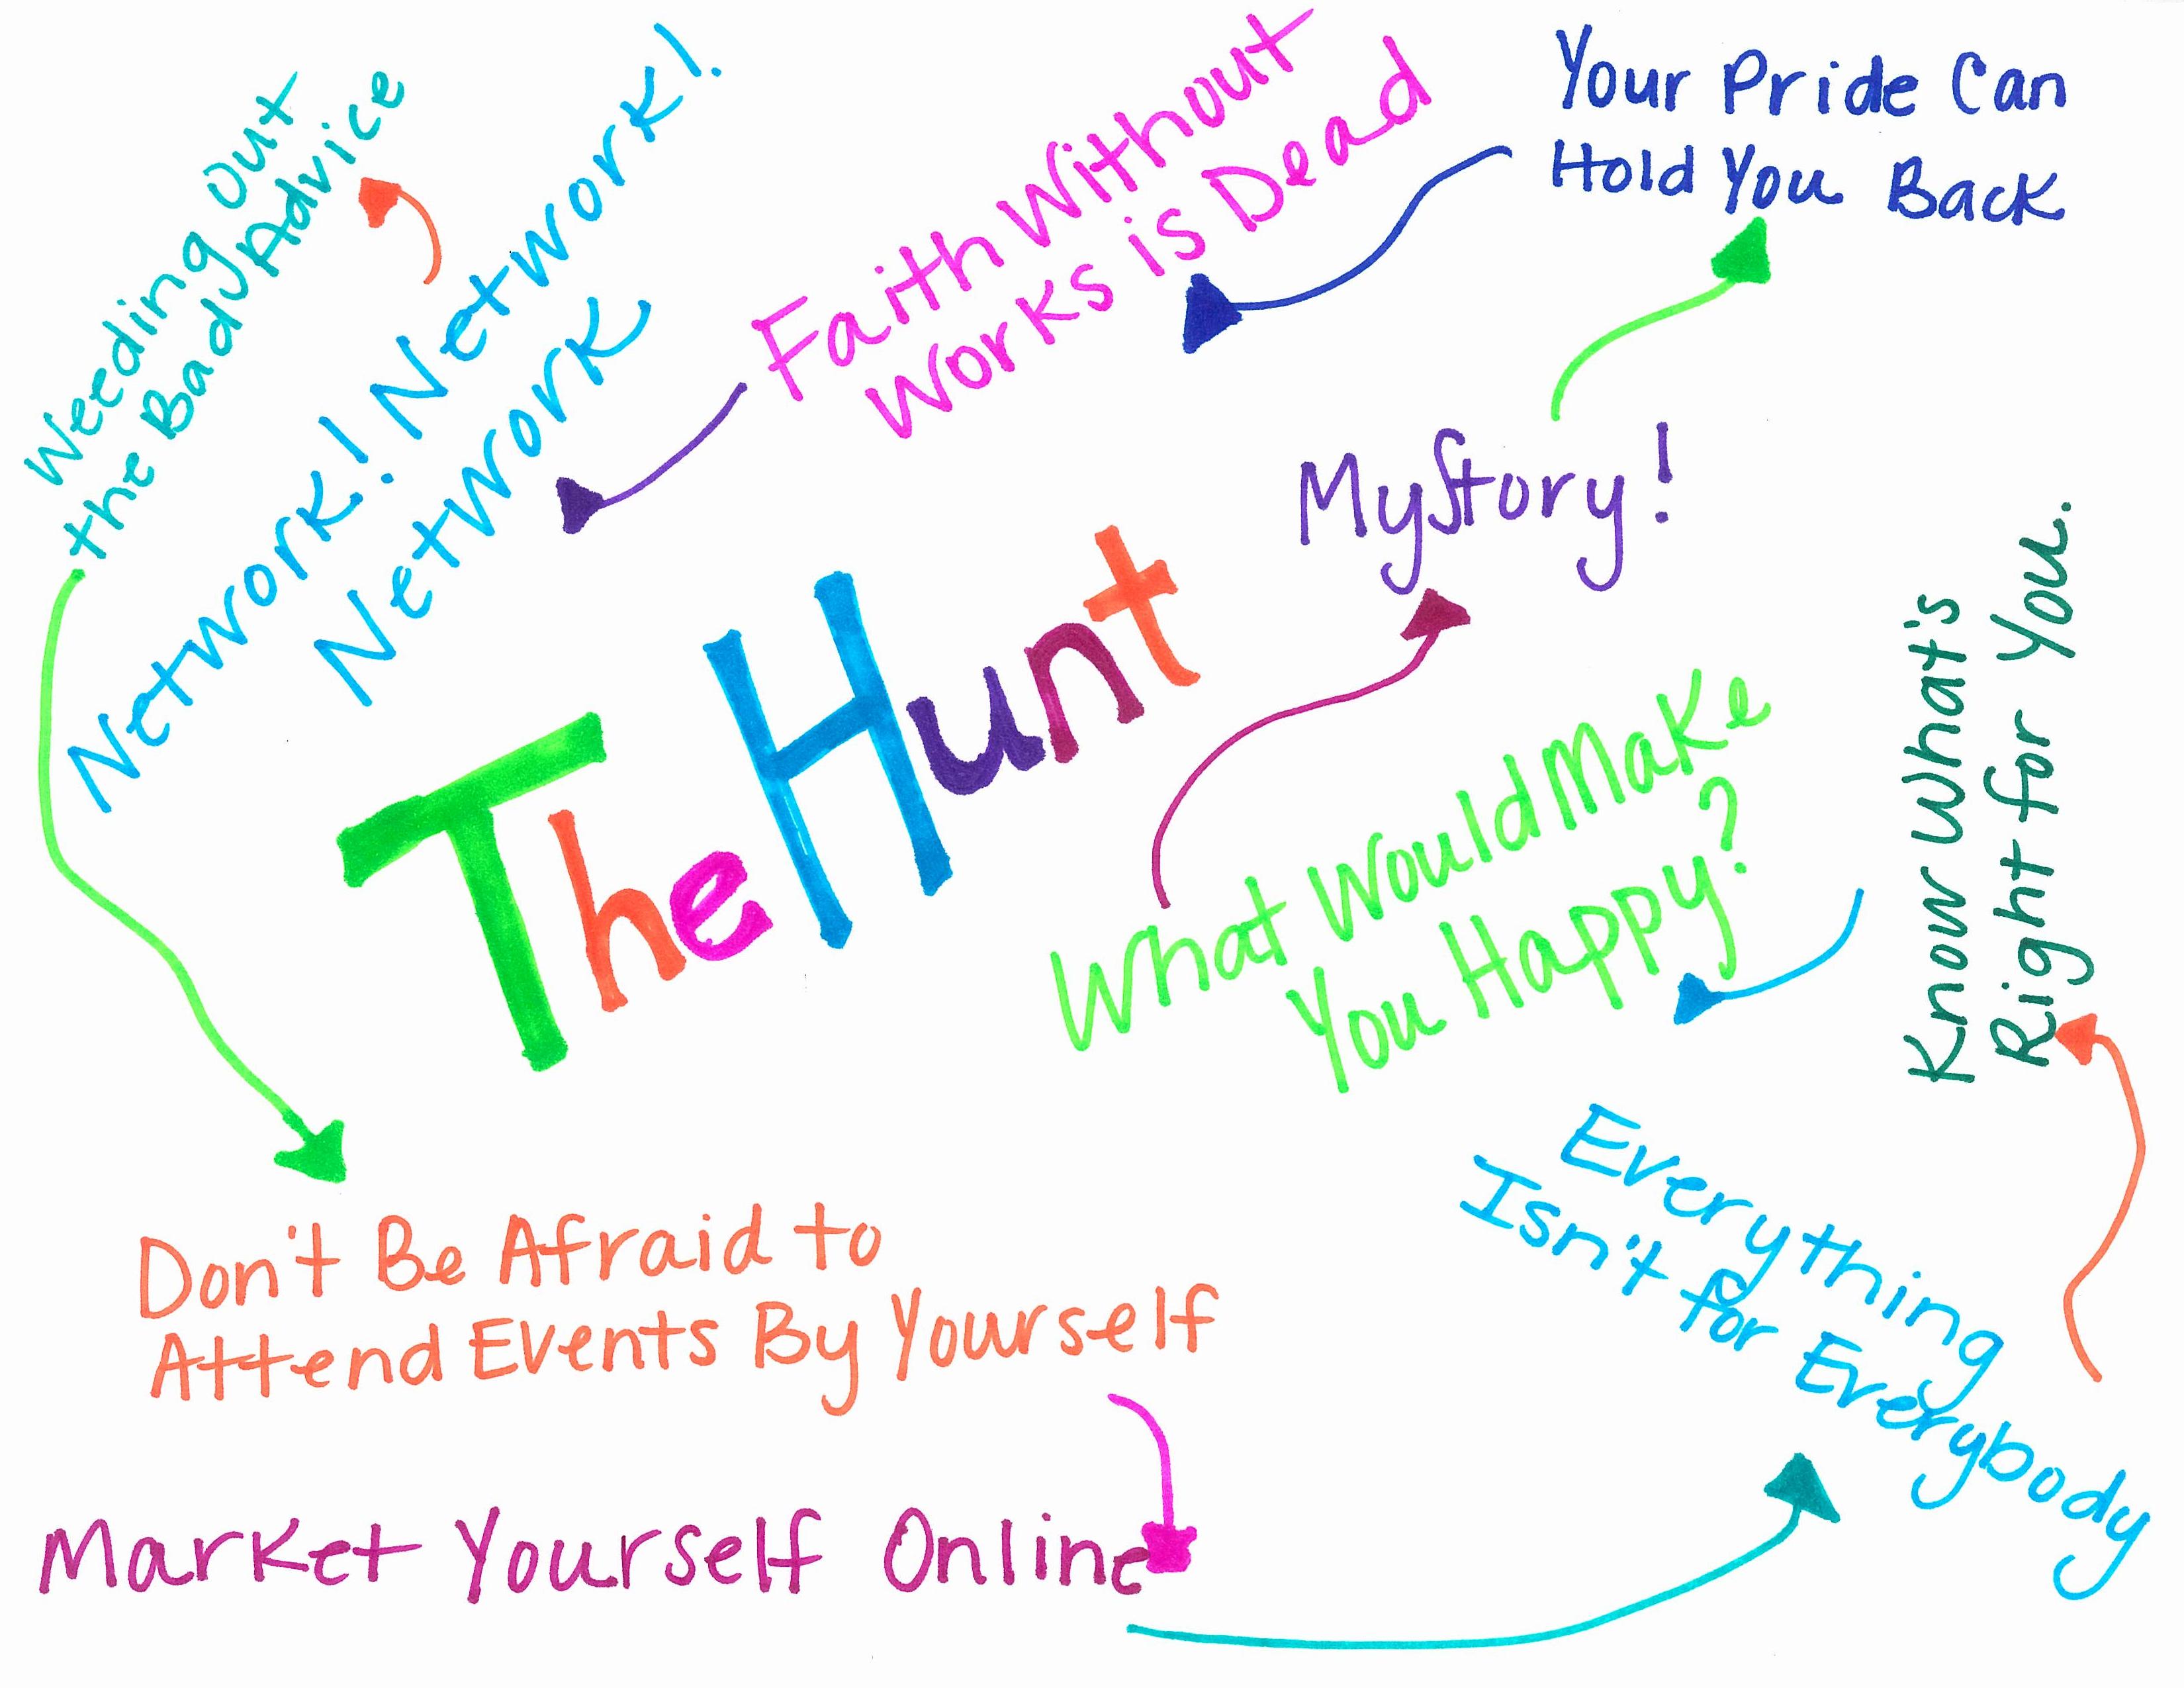 Weeding out
the Bad Advice
Network! Network!
Network
Faith Without
Works is Dead
Your Pride Can
Hold You Back
My Story!
The Hunt
What Would Make
You Happy?
Know What's
Right for You.
Everything
Isn't for Everybody
Don't Be Afraid to
Attend Events By Yourself
Market Yourself Online